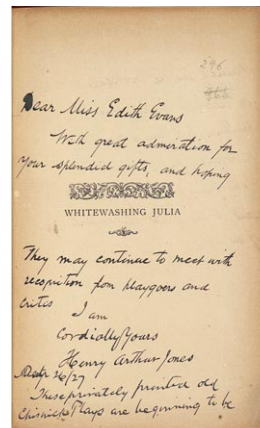 296
Dear Miss Edith Evans
With great admiration for
your splendid gifts, and hoping
WHITEWASHING JULIA
They may continue to meet with
recognition from playgoers and
critics
I am
Cordially Yours
Henry Arthur Jones
26/27
These privately printed old
Chiswick Plays are beginning to be